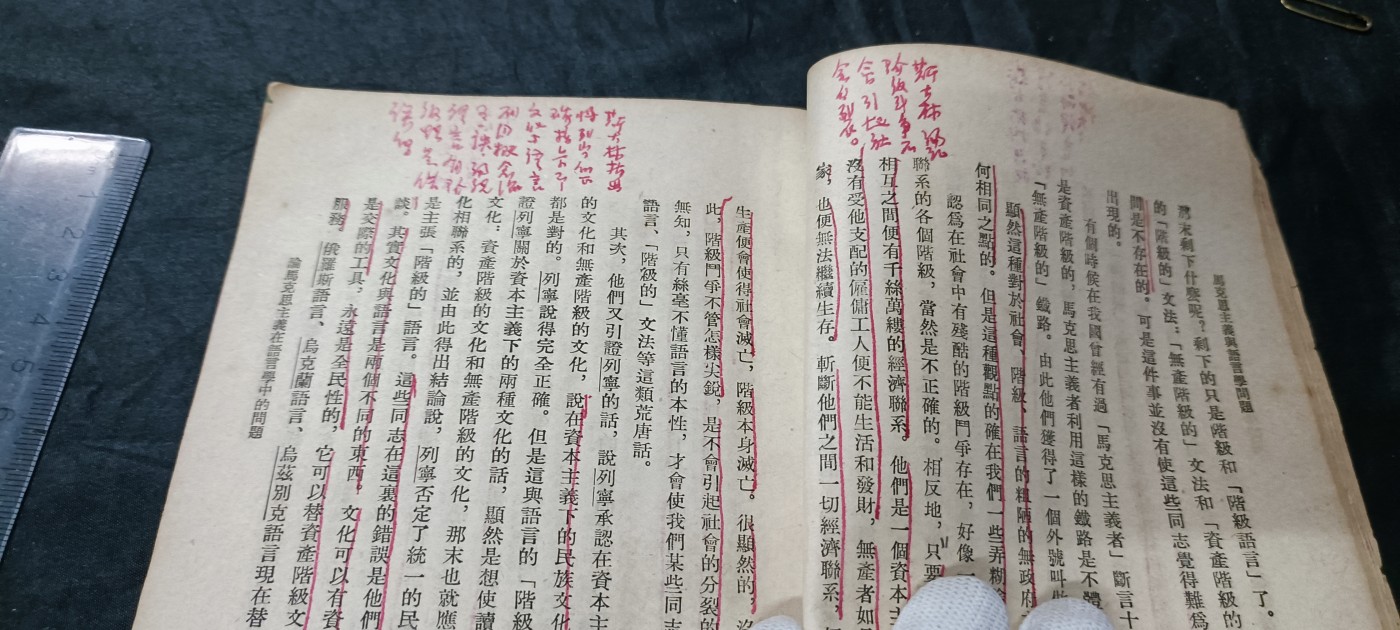 馬克思主義與語言學問題
那末剩下什麽呢？剩下的只是階級和「階級語言」了。
的「階級的」文法：「無產階級的」文法和「資產階級的
間是不存在的。可是這件事並沒有使這些同志覺得難爲
出現的。
有個時候在我國曾經有過「馬克思主義者」斷言十
是資產階級的，馬克思主義者利用這樣的鐵路是不體
「無產階級的」鐵路。由此他們獲得了一個外號叫
顯然這種對於社會、階級、語言的粗陋的無政府
何相同之點的。但是這種觀點的確在我們一些弄糊
認爲在社會中有殘酷的階級鬥爭存在，好像
聯系的各個階級，當然是不正確的。相反地，只要
相互之間便有千絲萬縷的經濟聯系。他們是一個資本主
沒有受他支配的僱傭工人便不能生活和發財，無產者如
家，也便無法繼續生存。斬斷他們之間一切經濟聯系，
斯大林認
階級斗爭不
會引起社
會分裂。
生產便會使得社會滅亡，階級本身滅亡。很顯然的，沒
此，階級鬥爭不管怎樣尖銳，是不會引起社會的分裂的
無知，只有絲毫不懂語言的本性，才會使我們某些同志
語言、「階級的」文法等這類荒唐話。
其次，他們又引證列寧的話，說列寧承認在資本主
的文化和無產階級的文化，說在資本主義下的民族文化
都是對的。列寧說得完全正確。但是這與語言的「階級
證列寧關於資本主義下的兩種文化的話，顯然是想使讀
文化：資產階級的文化和無產階級的文化，那末也就應
化相聯系的，並由此得出結論說，列寧否定了統一的民
是主張「階級的」語言。這些同志在這裏的錯誤是他們
談。其實文化與語言是兩個不同的東西。文化可以有資
是交際的工具，永遠是全民性的，它可以替資產階級文
服務。俄羅斯語言、烏克蘭語言、烏茲別克語言現在替
論馬克思主義在語言學中的問題
斯大林指出